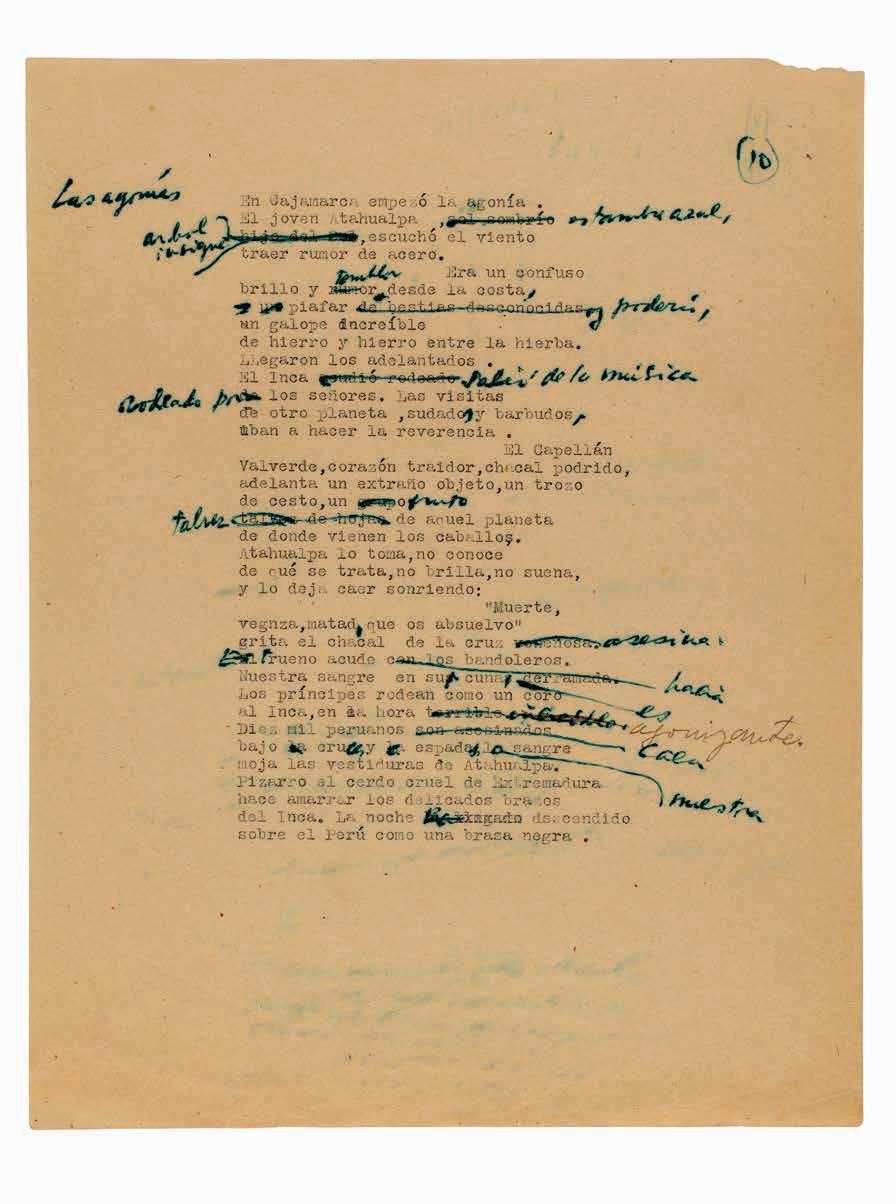 10
Las agonías
En Cajamarca empezó la agonía .
El joven Atahualpa ,sol sombrío estambre azul,
arbol
insigne
hijo del Sol,escuchó el viento
traer rumor de acero.
Era un confuso
temblor
brillo y rumor desde la costa,
un piafar de bestias desconocidas y poderío,
un galope increíble
de hierro y hierro entre la hierba.
LLegaron los adelantados .
El Inca acudió rodeado salió de la música
rodeado por los señores. Las visitas
de otro planeta ,sudados y barbudos,
iban a hacer la reverencia .
El Capellán
Valverde,corazón traidor,chacal podrido,
adelanta un extraño objeto,un trozo
de cesto,un fruto
talvez talvez de hojas de aquel planeta
de donde vienen los caballos.
Atahualpa lo toma,no conoce
de qué se trata,no brilla,no suena,
y lo deja caer sonriendo:
"Muerte,
vegnza,matad, que os absuelvo"
grita el chacal de la cruz venenosa. asesina.
El trueno acude con los bandoleros. hacia
Nuestra sangre en su cuna, derramada. es
Los príncipes rodean como un coro
al Inca,en la hora terrible agonizante.
Diez mil peruanos son asesinados caen
bajo cruces y espadas,la sangre
moja las vestiduras de Atahualpa.
Pizarro el cerdo cruel de Extremadura
hace amarrar los delicados brazos nuestra
del Inca. La noche ha descendido
sobre el Perú como una braza negra .